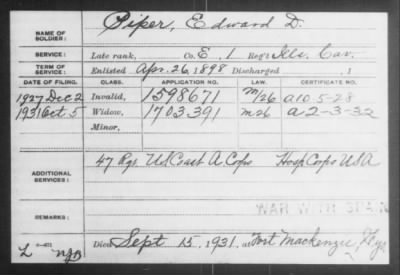 NAME OF SOLDIER: Piper, Edward D.
SERVICE: Late rank, Co. E, 1 Reg't Ills. Cav.
TERM OF SERVICE: Enlisted Apr. 26, 1898 Discharged , 1
DATE OF FILING. CLASS. APPLICATION NO. LAW. CERTIFICATE NO.
1927 Dec 2 Invalid, 1598671 M/26 a 10 5-28
1931 Oct 5 Widow, 1703.391 M26 a-2-3-32
Minor,
ADDITIONAL SERVICES: 47 Rgs. US Coast A Corps Hosp Corps USA
WAR WITH SPAIN
REMARKS:
Died Sept 15, 1931, at Fort Mackenzie, Wyo